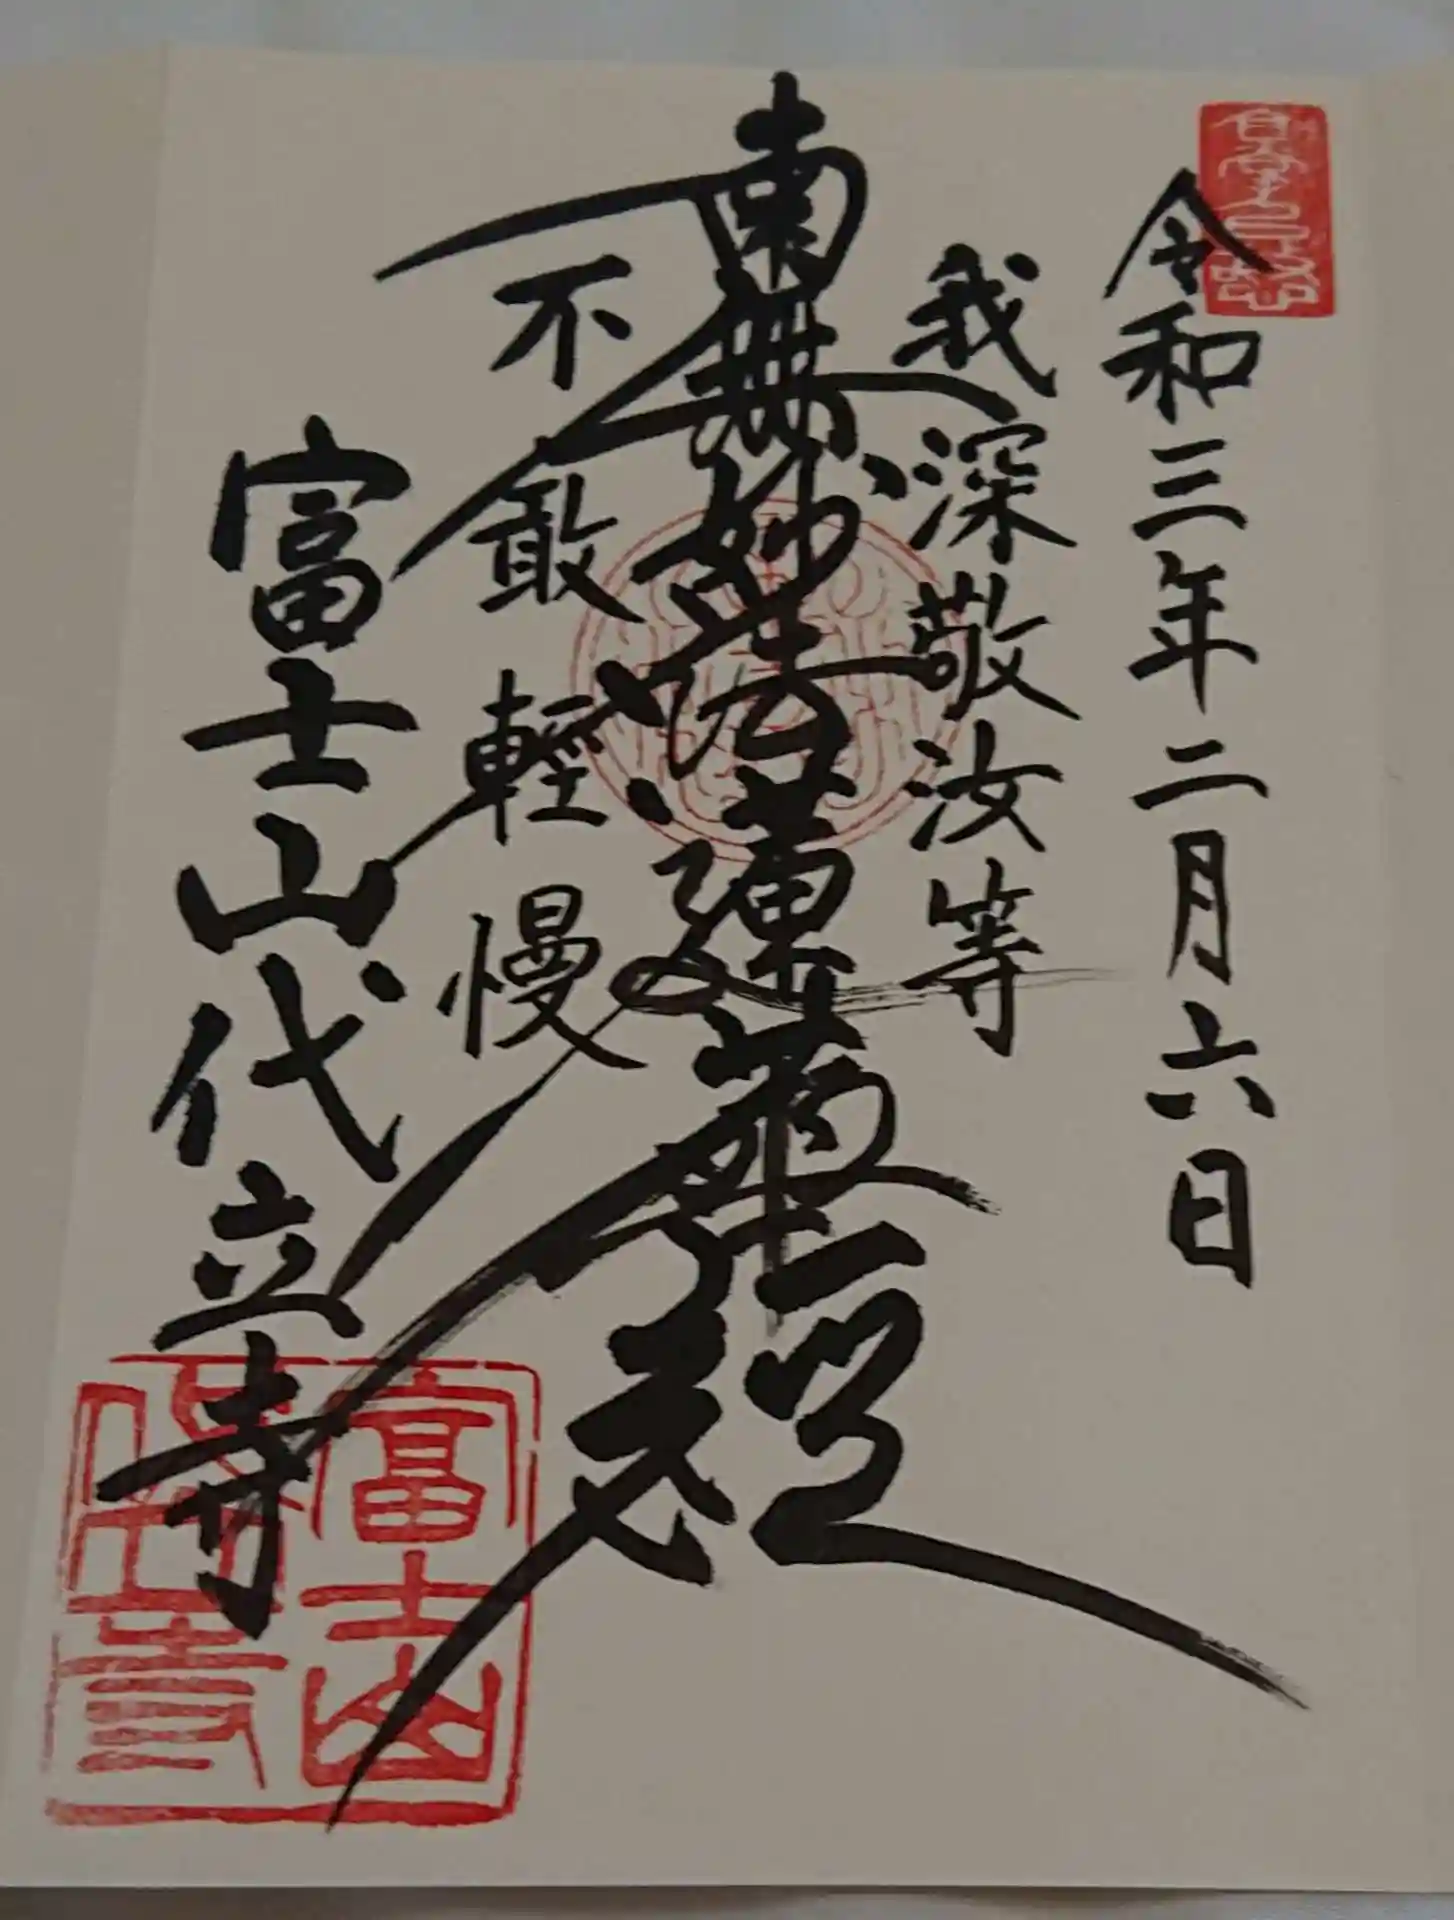 令和三年二月六日
我深敬汝等
南無妙法蓮華経
不敢輕慢
富士山代立寺
富士山代立寺